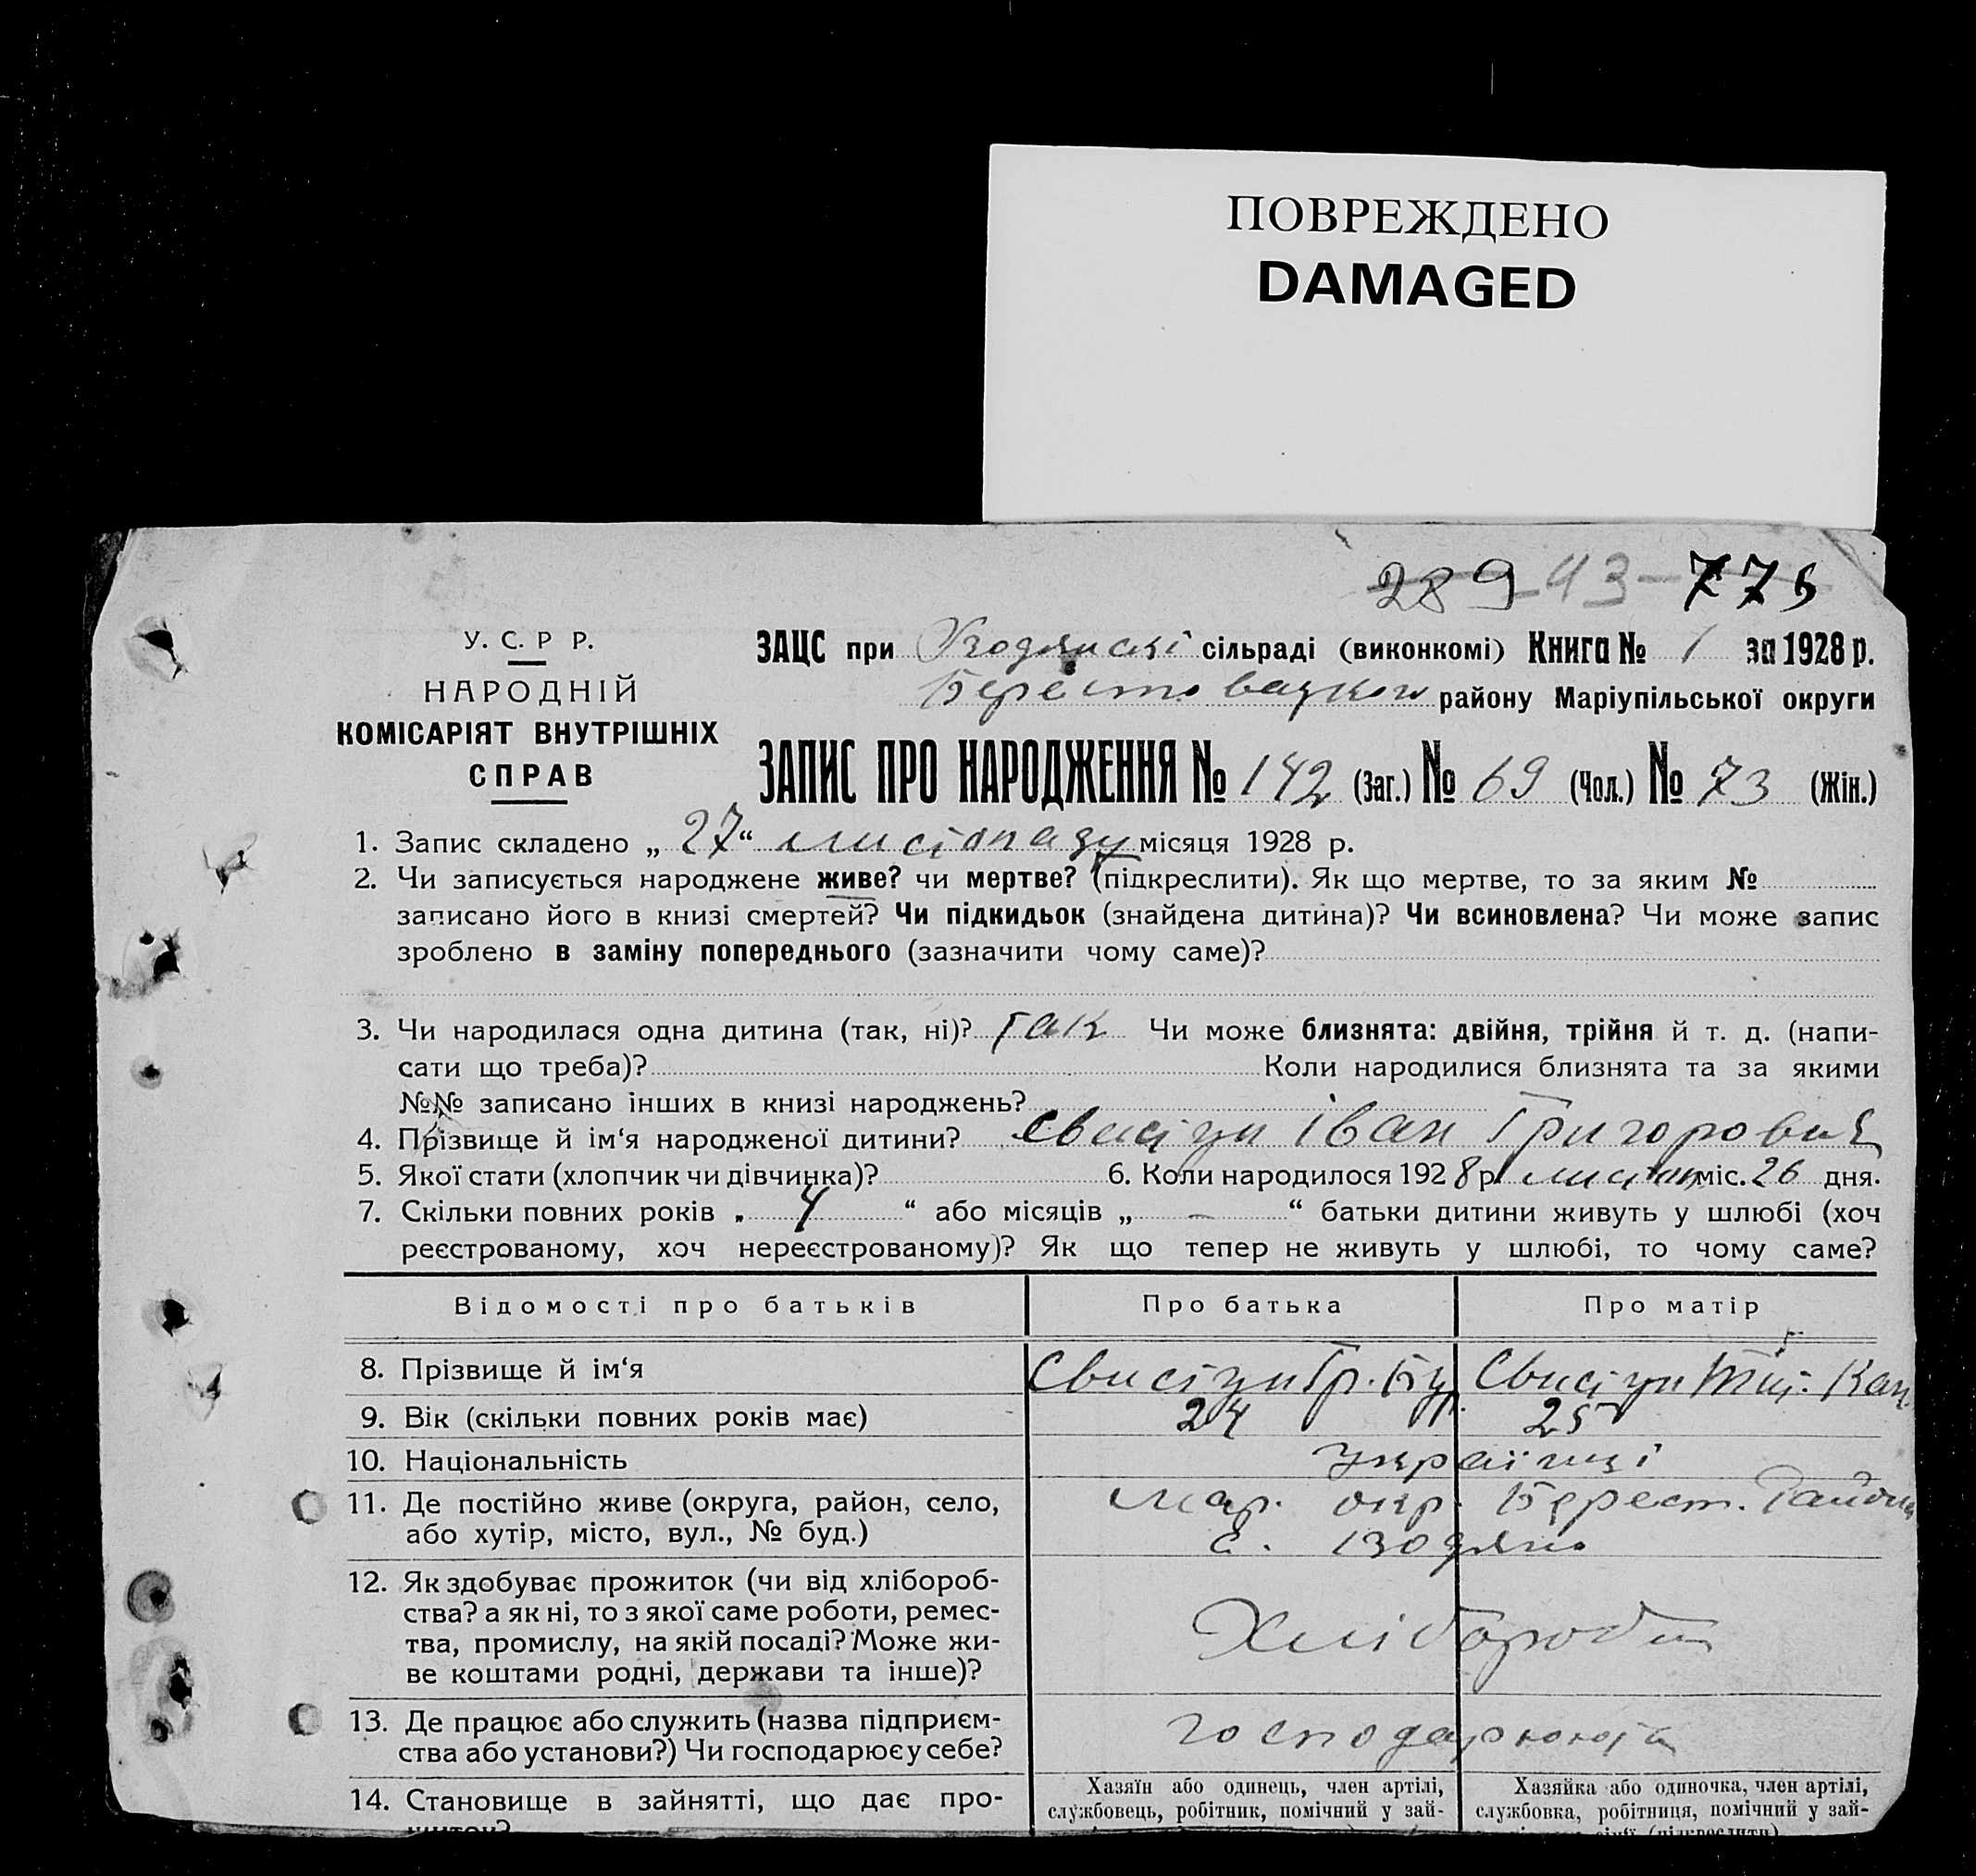 ПОВРЕЖДЕНО
DAMAGED
289 43 775
У. С. Р Р.
НАРОДНІЙ
КОМІСАРІЯТ ВНУТРІШНІХ
СПРАВ
ЗАЦС при сільраді (виконкомі) Книга № 1 за 1928 р.
району Маріупільської округи
ЗАПИС ПРО НАРОДЖЕННЯ № 142 (Заг.) № 69 (Чол.) № 73 (Жін.)
1. Запис складено „ 27 “ листопаду місяця 1928 р.
2. Чи записується народжене живе? чи мертве? (підкреслити). Як що мертве, то за яким №
записано його в книзі смертей? Чи підкидьок (знайдена дитина)? Чи всиновлена? Чи може запис
зроблено в заміну попереднього (зазначити чому саме)?
3. Чи народилася одна дитина (так, ні)? так Чи може близнята: двійня, трійня й т. д. (напи-
сати що треба)? Коли народилися близнята та за якими
№№ записано інших в книзі народжень?
4. Прізвище й ім‘я народженої дитини? Свистун Іван Григорович
5. Якої стати (хлопчик чи дівчинка)? 6. Коли народилося 1928 р. листоп. міс. 26 дня.
7. Скільки повних років „ 4 “ або місяців „ — “ батьки дитини живуть у шлюбі (хоч
реєстрованому, хоч нереєстрованому)? Як що тепер не живуть у шлюбі, то чому саме?
Відомості про батьків Про батька Про матір
8. Прізвище й ім‘я Свистун Гр. Свистун
9. Вік (скільки повних років має) 24 25
10. Національність українці
11. Де постійно живе (округа, район, село, Мар. окр. Берест. Району
або хутір, місто, вул., № буд.) с. Водяно
12. Як здобуває прожиток (чи від хлібороб-
ства? а як ні, то з якої саме роботи, ремес-
тва, промислу, на якій посаді? Може жи- Хлібороби
ве коштами родні, держави та інше)?
13. Де працює або служить (назва підприєм- господарюють
ства або установи?) Чи господарює у себе?
14. Становище в зайнятті, що дає про- Хазяїн або одинець, член артілі, Хазяйка або одиночка, член артілі,
службовець, робітник, помічний у зай- службовка, робітниця, помічний у зай-